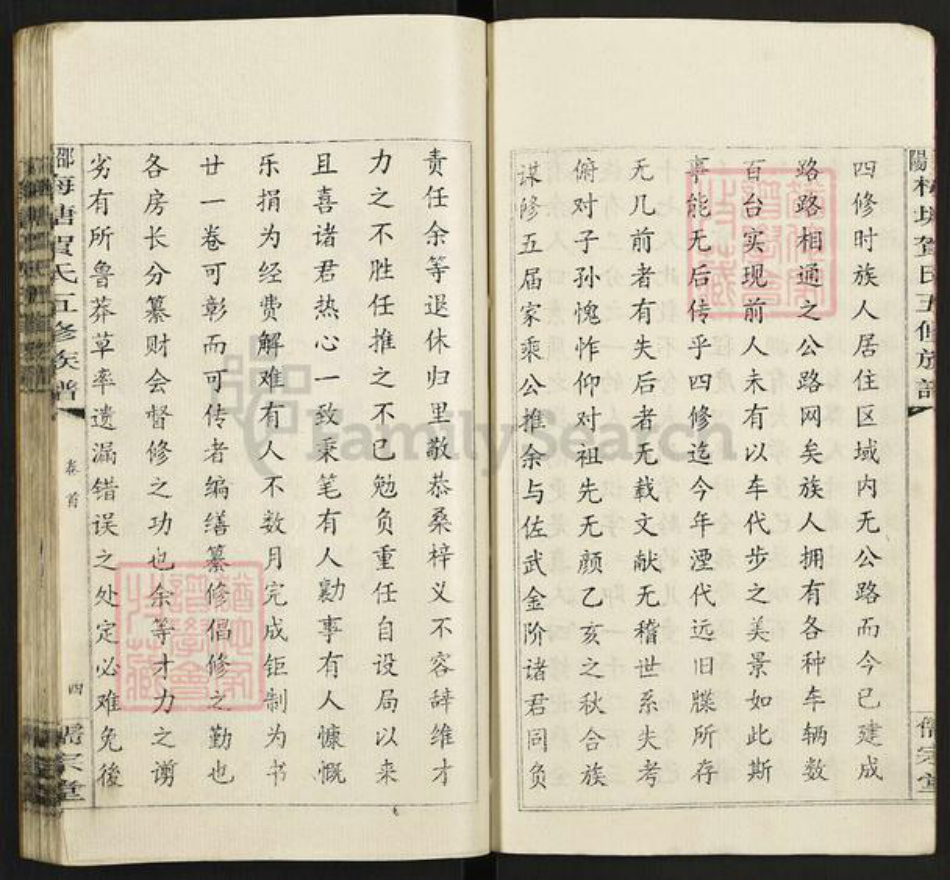 四修时族人居住区域内无公路而今已建成
路路相通之公路网矣族人拥有各种车辆数
百台实现前人未有以车代步之美景如此斯
事能无后传乎四修迄今年湮代远旧牒所存
无几前者有失后者无载文献无稽世系失考
俯对子孙愧怍仰对祖先无颜乙亥之秋合族
谋修五届家乘公推余与佐武金阶诸君同负
责任余等退休归里敬恭桑梓义不容辞维才
力之不胜任推之不已勉负重任自设局以来
且喜诸君热心一致秉笔有人勷事有人慷慨
乐捐为经费解难有人不数月完成钜制为书
廿一卷可彰而可传者编缮纂修倡修之勤也
各房长分纂财会督修之功也余等才力之谫
劣有所鲁莽草率遗漏错误之处定必难免後
邵 梅塘賀氏五修族譜
卷首
四
FamilySearch